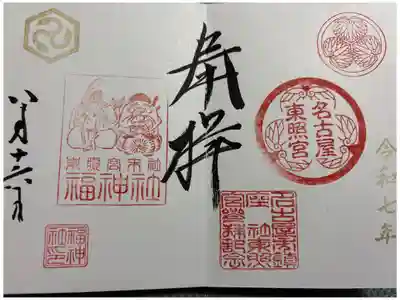 令和七年
名古屋
東照宮
奉拝
東照宮末社
福神社
福神
社印
八月十六日